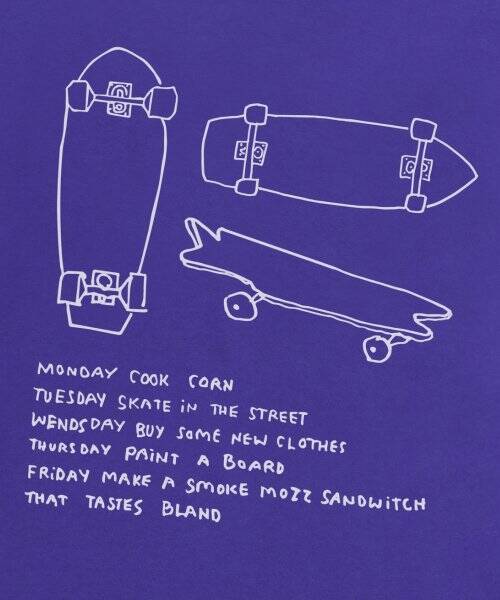 MONDAY COOK CORN
TUESDAY SKATE iN THE STREET
WENDSDAY BUY SOME NEW CLOTHES
THURSDAY PAINT A BOARD
FRiDAY MAKE A SMOKE MOZZ SANDWiTCH
THAT TASTES BLAND